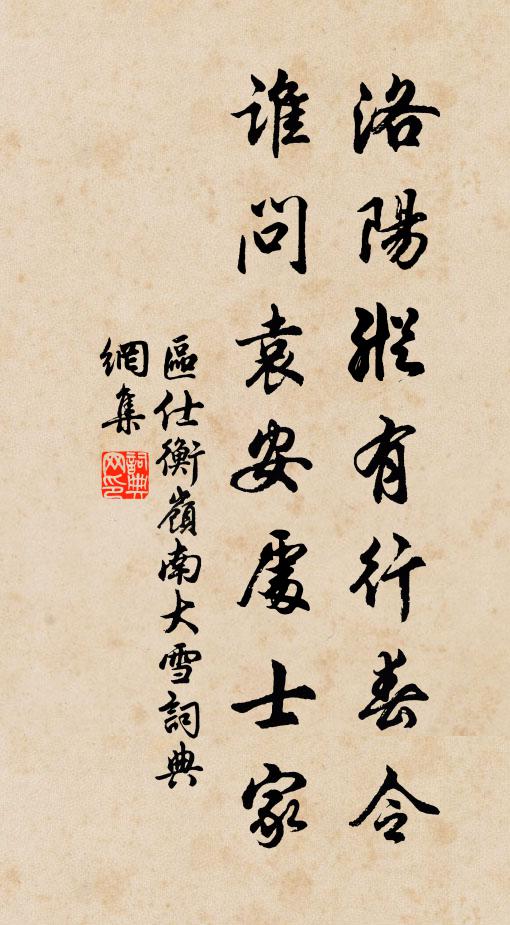 洛陽縱有行春令
誰問袁安處士家
區仕衡嶺南大雪詞典
網集
詞典網印